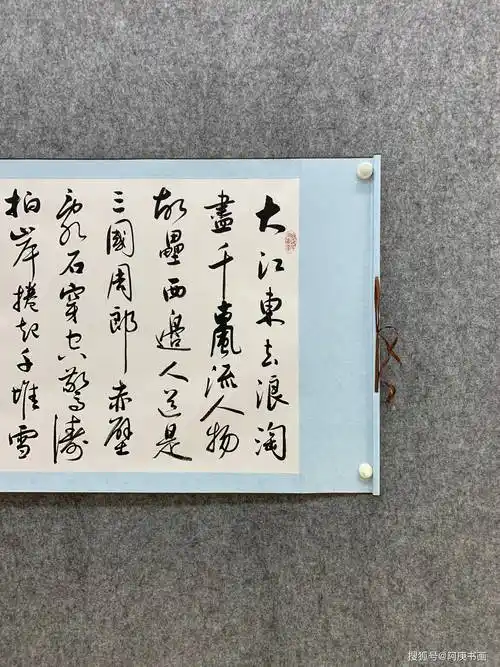 大江東去浪淘
盡千古風流人物
故壘西邊人道是
三國周郎赤壁
亂石穿空驚濤
拍岸捲起千堆雪
搜狐号@阿庚书画